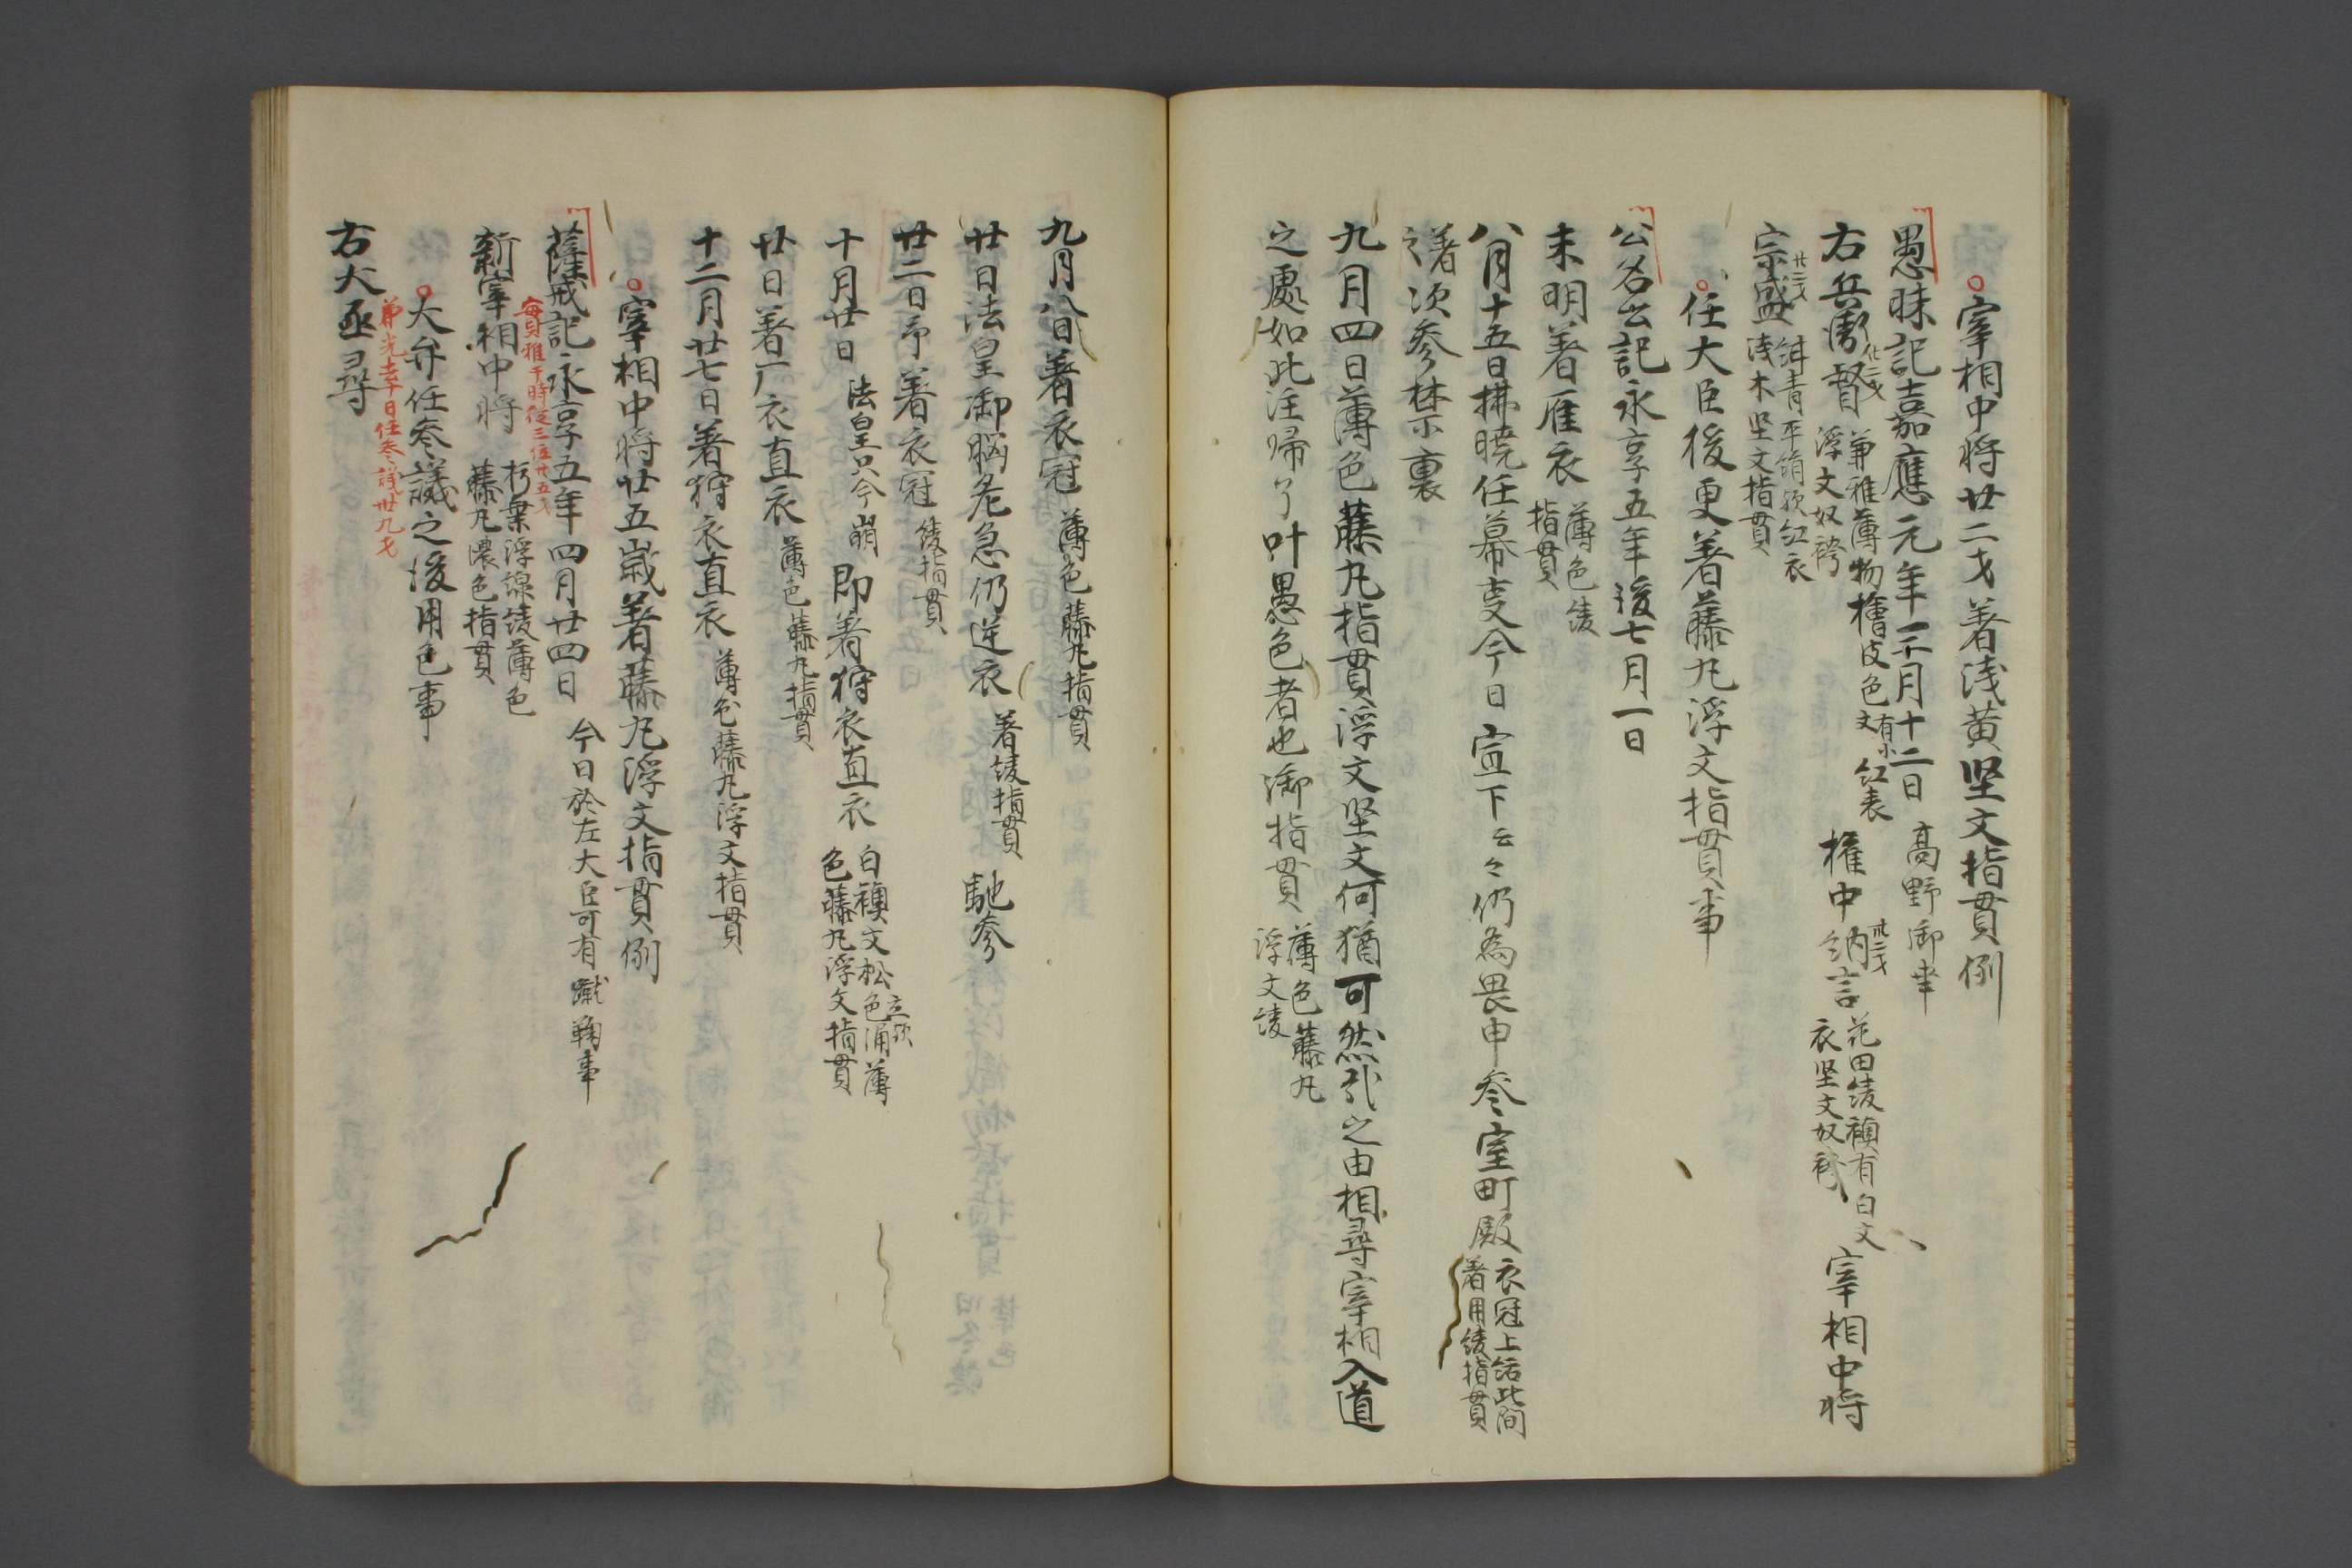 。宰相中将廿二才著浅黄堅文指貫例
愚昧記嘉應元年三月十二日 高野御幸
右兵衛督 廿二才 兼雅薄物檜皮色 有小文 紅表
浮文奴袴
権中納言 卅二才 花田綾襖有白文
衣堅文奴袴
宰相中将
宗盛 廿二才 緋青平絹 紅衣
浅木堅文指貫
。任大臣後更著藤丸浮文指貫事
公名公記永享五年後七月一日
未明著雁衣 薄色綾
指貫
八月十五日拂暁任幕支今日宣下云々仍為畏申参室町殿 衣冠上結此間
著用綾指貫
之著次参禁裏
九月四日薄色藤丸指貫浮文堅文何猶可然哉之由相尋宰相入道
之處如此注帰了叶愚色者也御指貫 薄色藤丸
浮文綾
九月八日著衣冠 薄色藤丸指貫
廿日法皇御脳危急仍逆衣 著綾指貫 馳参
廿二日予著衣冠 綾指貫
十月廿日 法皇只今崩 即著狩衣直衣 白襖文松立涌 薄
色藤丸浮文指貫
廿日著厂衣直衣 薄色藤丸指貫
十二月廿七日著狩衣直衣 薄色藤丸浮文指貫
。宰相中将廿五歳著藤丸浮文指貫例
薩戒記永享五年四月廿四日 今日於左大臣可有蹴鞠事
新宰相中将 每貝雅于時従三位廿五才 朽葉浮線綾薄色
藤丸濃色指貫
。大弁任参議之後用色事
兼光去年日任参議卅九才
右大丞尋